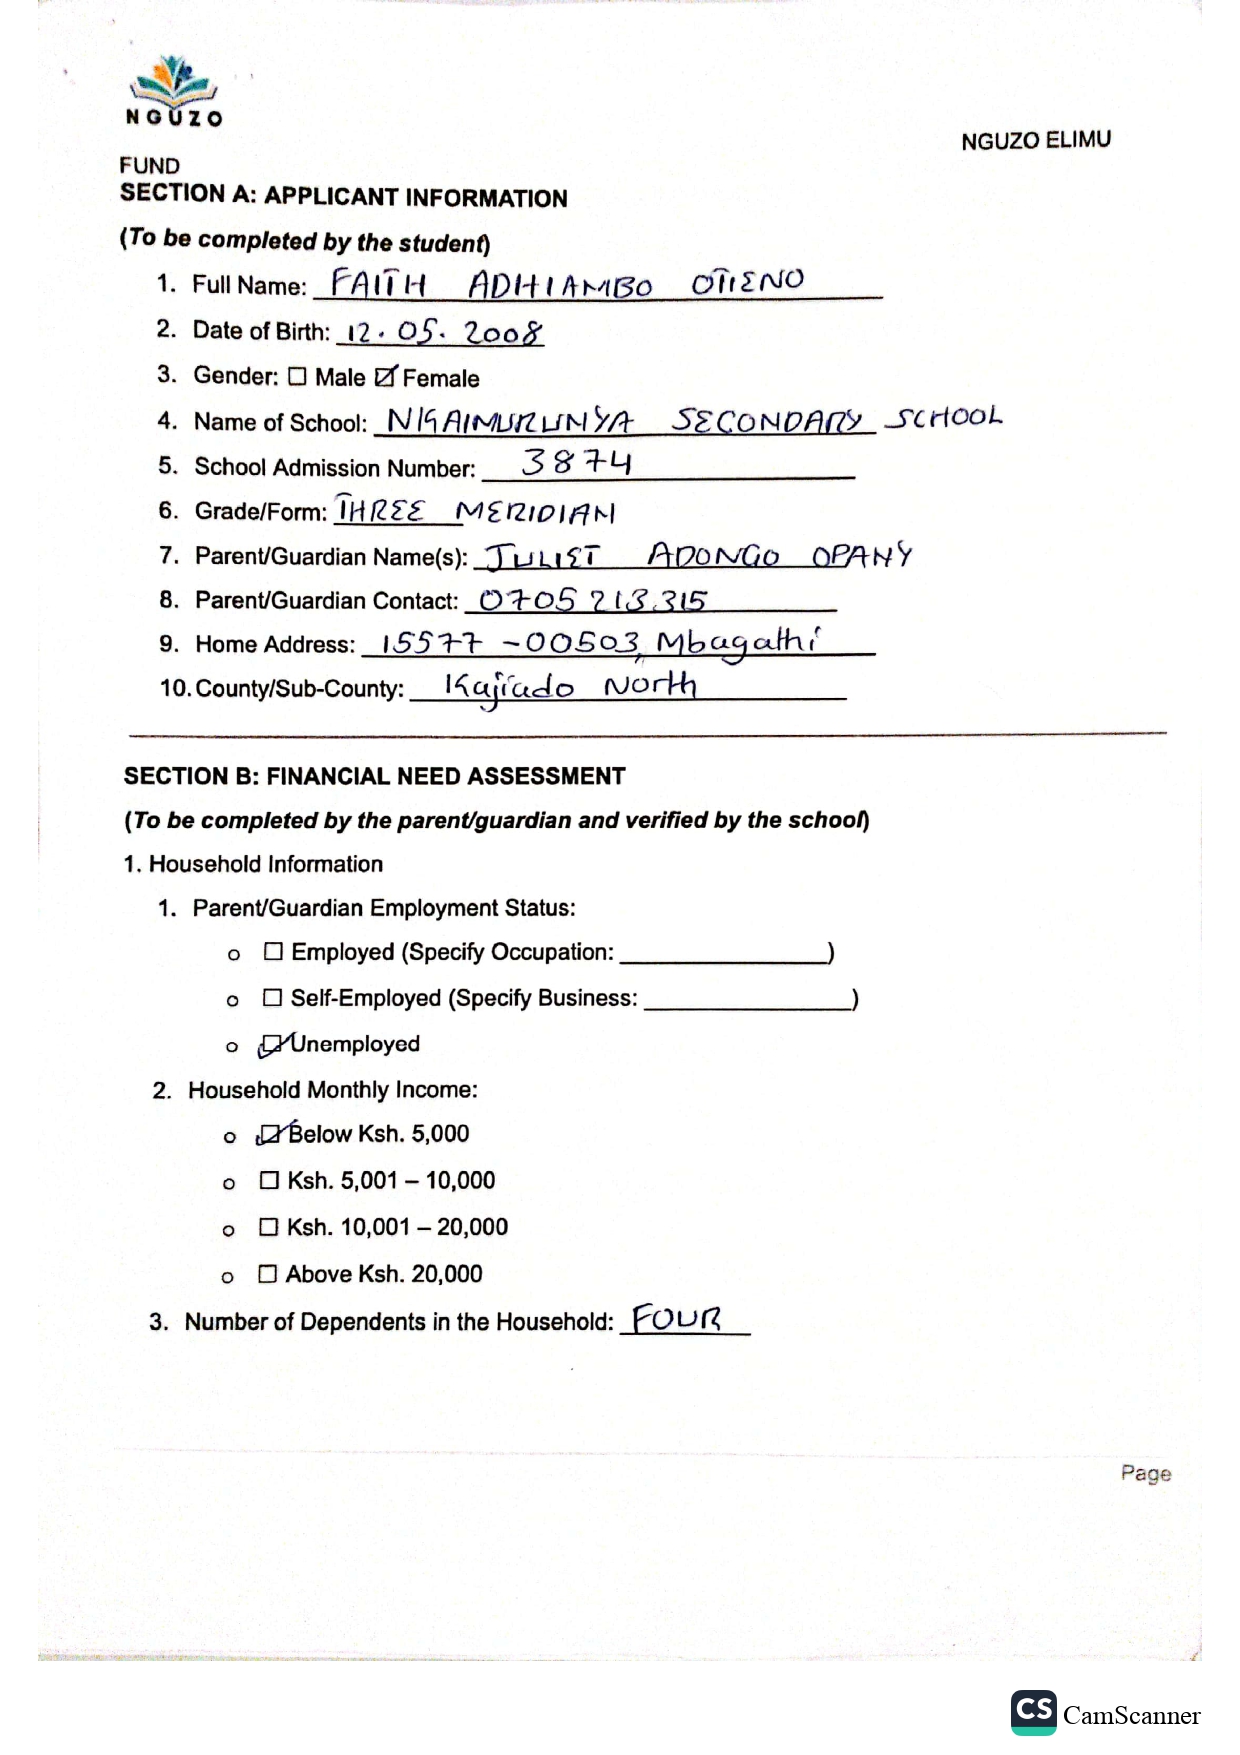 NGUZO
NGUZO ELIMU
FUND
SECTION A: APPLICANT INFORMATION
(To be completed by the student)
1. Full Name: FAITH ADHIAMBO OTIENO
2. Date of Birth: 12.05.2008
3. Gender: ☐ Male ☑ Female
4. Name of School: NKAIMURUNYA SECONDARY SCHOOL
5. School Admission Number: 3874
6. Grade/Form: THREE MERIDIAN
7. Parent/Guardian Name(s): JULIET ADONGO OPANY
8. Parent/Guardian Contact: 0705 213 315
9. Home Address: 15577 - 00503, Mbagathi
10. County/Sub-County: Kajiado North
SECTION B: FINANCIAL NEED ASSESSMENT
(To be completed by the parent/guardian and verified by the school)
1. Household Information
1. Parent/Guardian Employment Status:
o ☐ Employed (Specify Occupation: ____________)
o ☐ Self-Employed (Specify Business: ____________)
o ☑ Unemployed
2. Household Monthly Income:
o ☑ Below Ksh. 5,000
o ☐ Ksh. 5,001 – 10,000
o ☐ Ksh. 10,001 – 20,000
o ☐ Above Ksh. 20,000
3. Number of Dependents in the Household: FOUR
Page
CS CamScanner